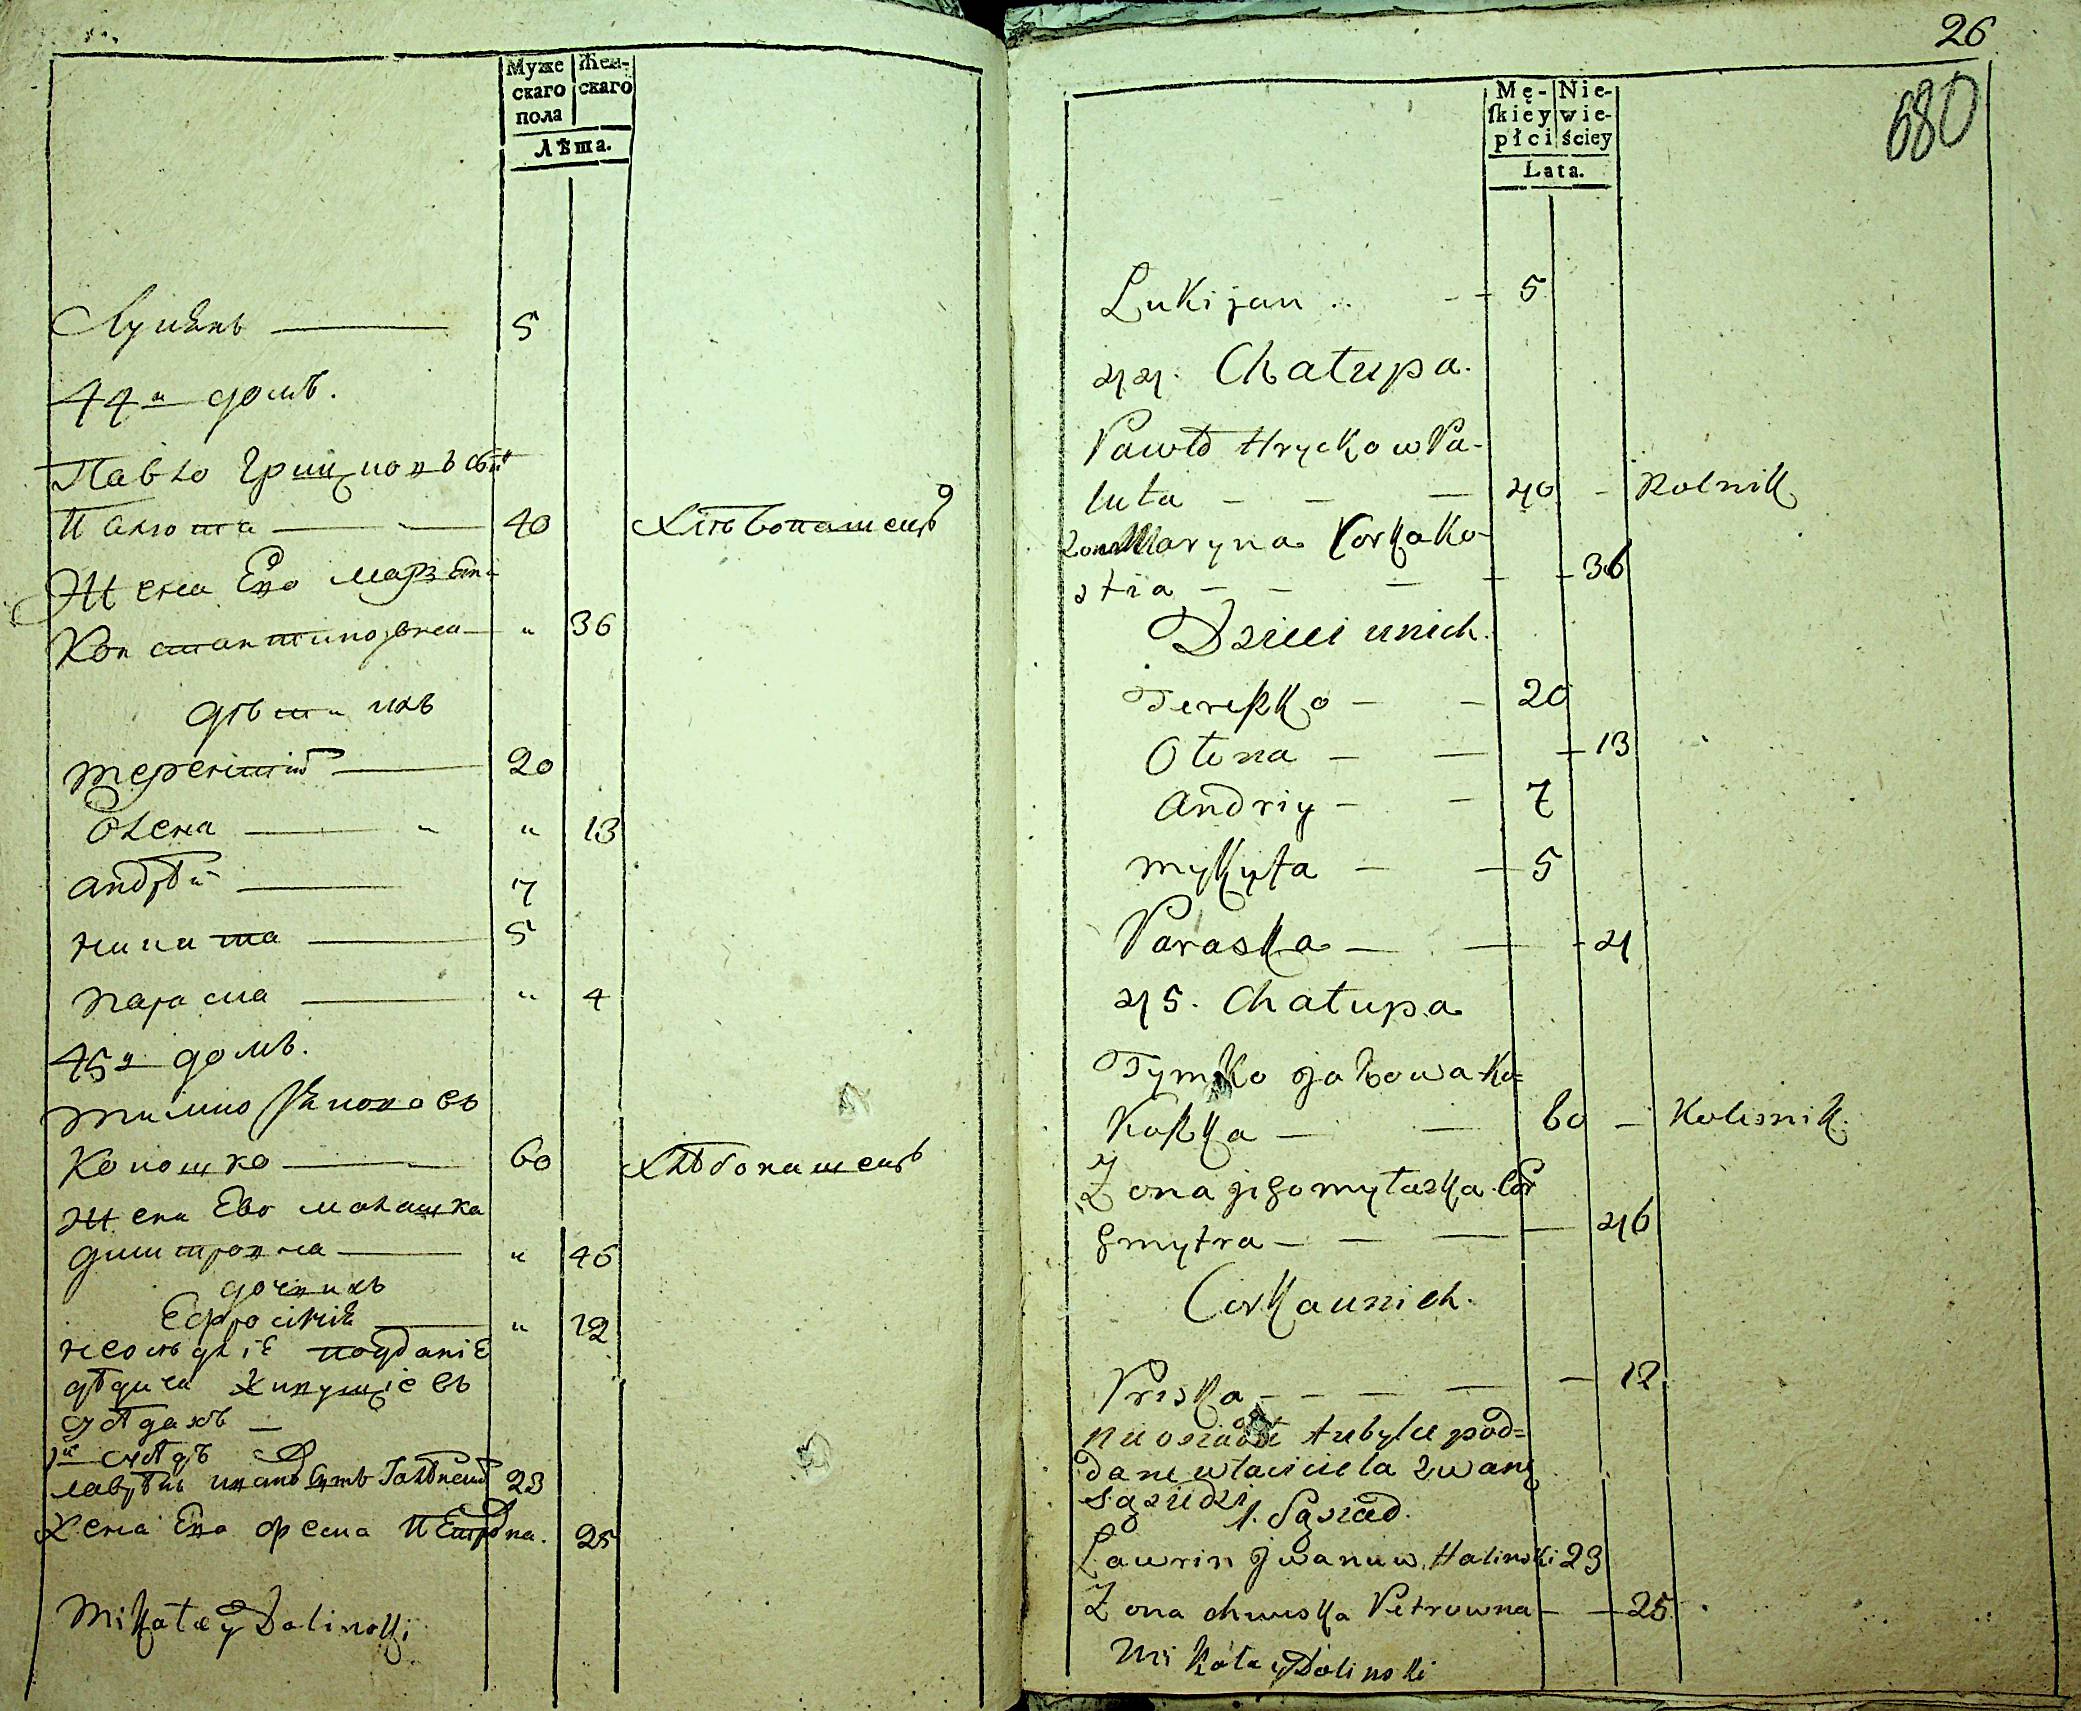 Муже
скаго
пола
Жен-
скаго
Лѣта.
Лукіянъ 5
44й домъ.
Павло Грицковъ сынъ
Палюта 40 Хлѣбопашецъ
Жена Ево Марья
Константиновна " 36
дѣти ихъ
Терентій 20
Олена " " 13
Андрѣй 7
Никита 5
Параска " 4
45й домъ.
Тимко Якововъ
Кокошка 60 Хлѣбопашецъ
Жена Ево Малашка
Дмитровна " 46
дочь ихъ
Ефросинія " 12
неосѣдліе подданіе
дѣдича живущіе въ
сусѣдахъ
1й сусѣдъ
Лаврѣнъ Ивановъ сынъ Галѣнскій 23
Жена Ево Феска Петровна. 25
Mikołay Dolinski
26
680
Mę-
skiey
płci
Nie-
wie-
ściey
Lata.
Lukijan 5
44. Chałupa.
Pawło Hryckow Pa-
luta 40 Rolnik
Żona Maryna Corka Ko-
stia 36
Dzieci unich.
Tereszko 20
Ołena 13
Andriy 7
Mykyta 5
Paraska 4
45. Chałupa
Tymko Jakowa Ko-
koszka 60 Kolesnik.
Żona jego Mytaszka Cor
Dmytra 46
Corka unich.
Pryska 12
Nie osiadłe tubylce pod-
dane właściciela zwane
sąsiedzi
1. Sąsiad.
Lawrin Jwanuw Halinski 23
Żona Chweska Petrowna 25
Mikołay Dolinski